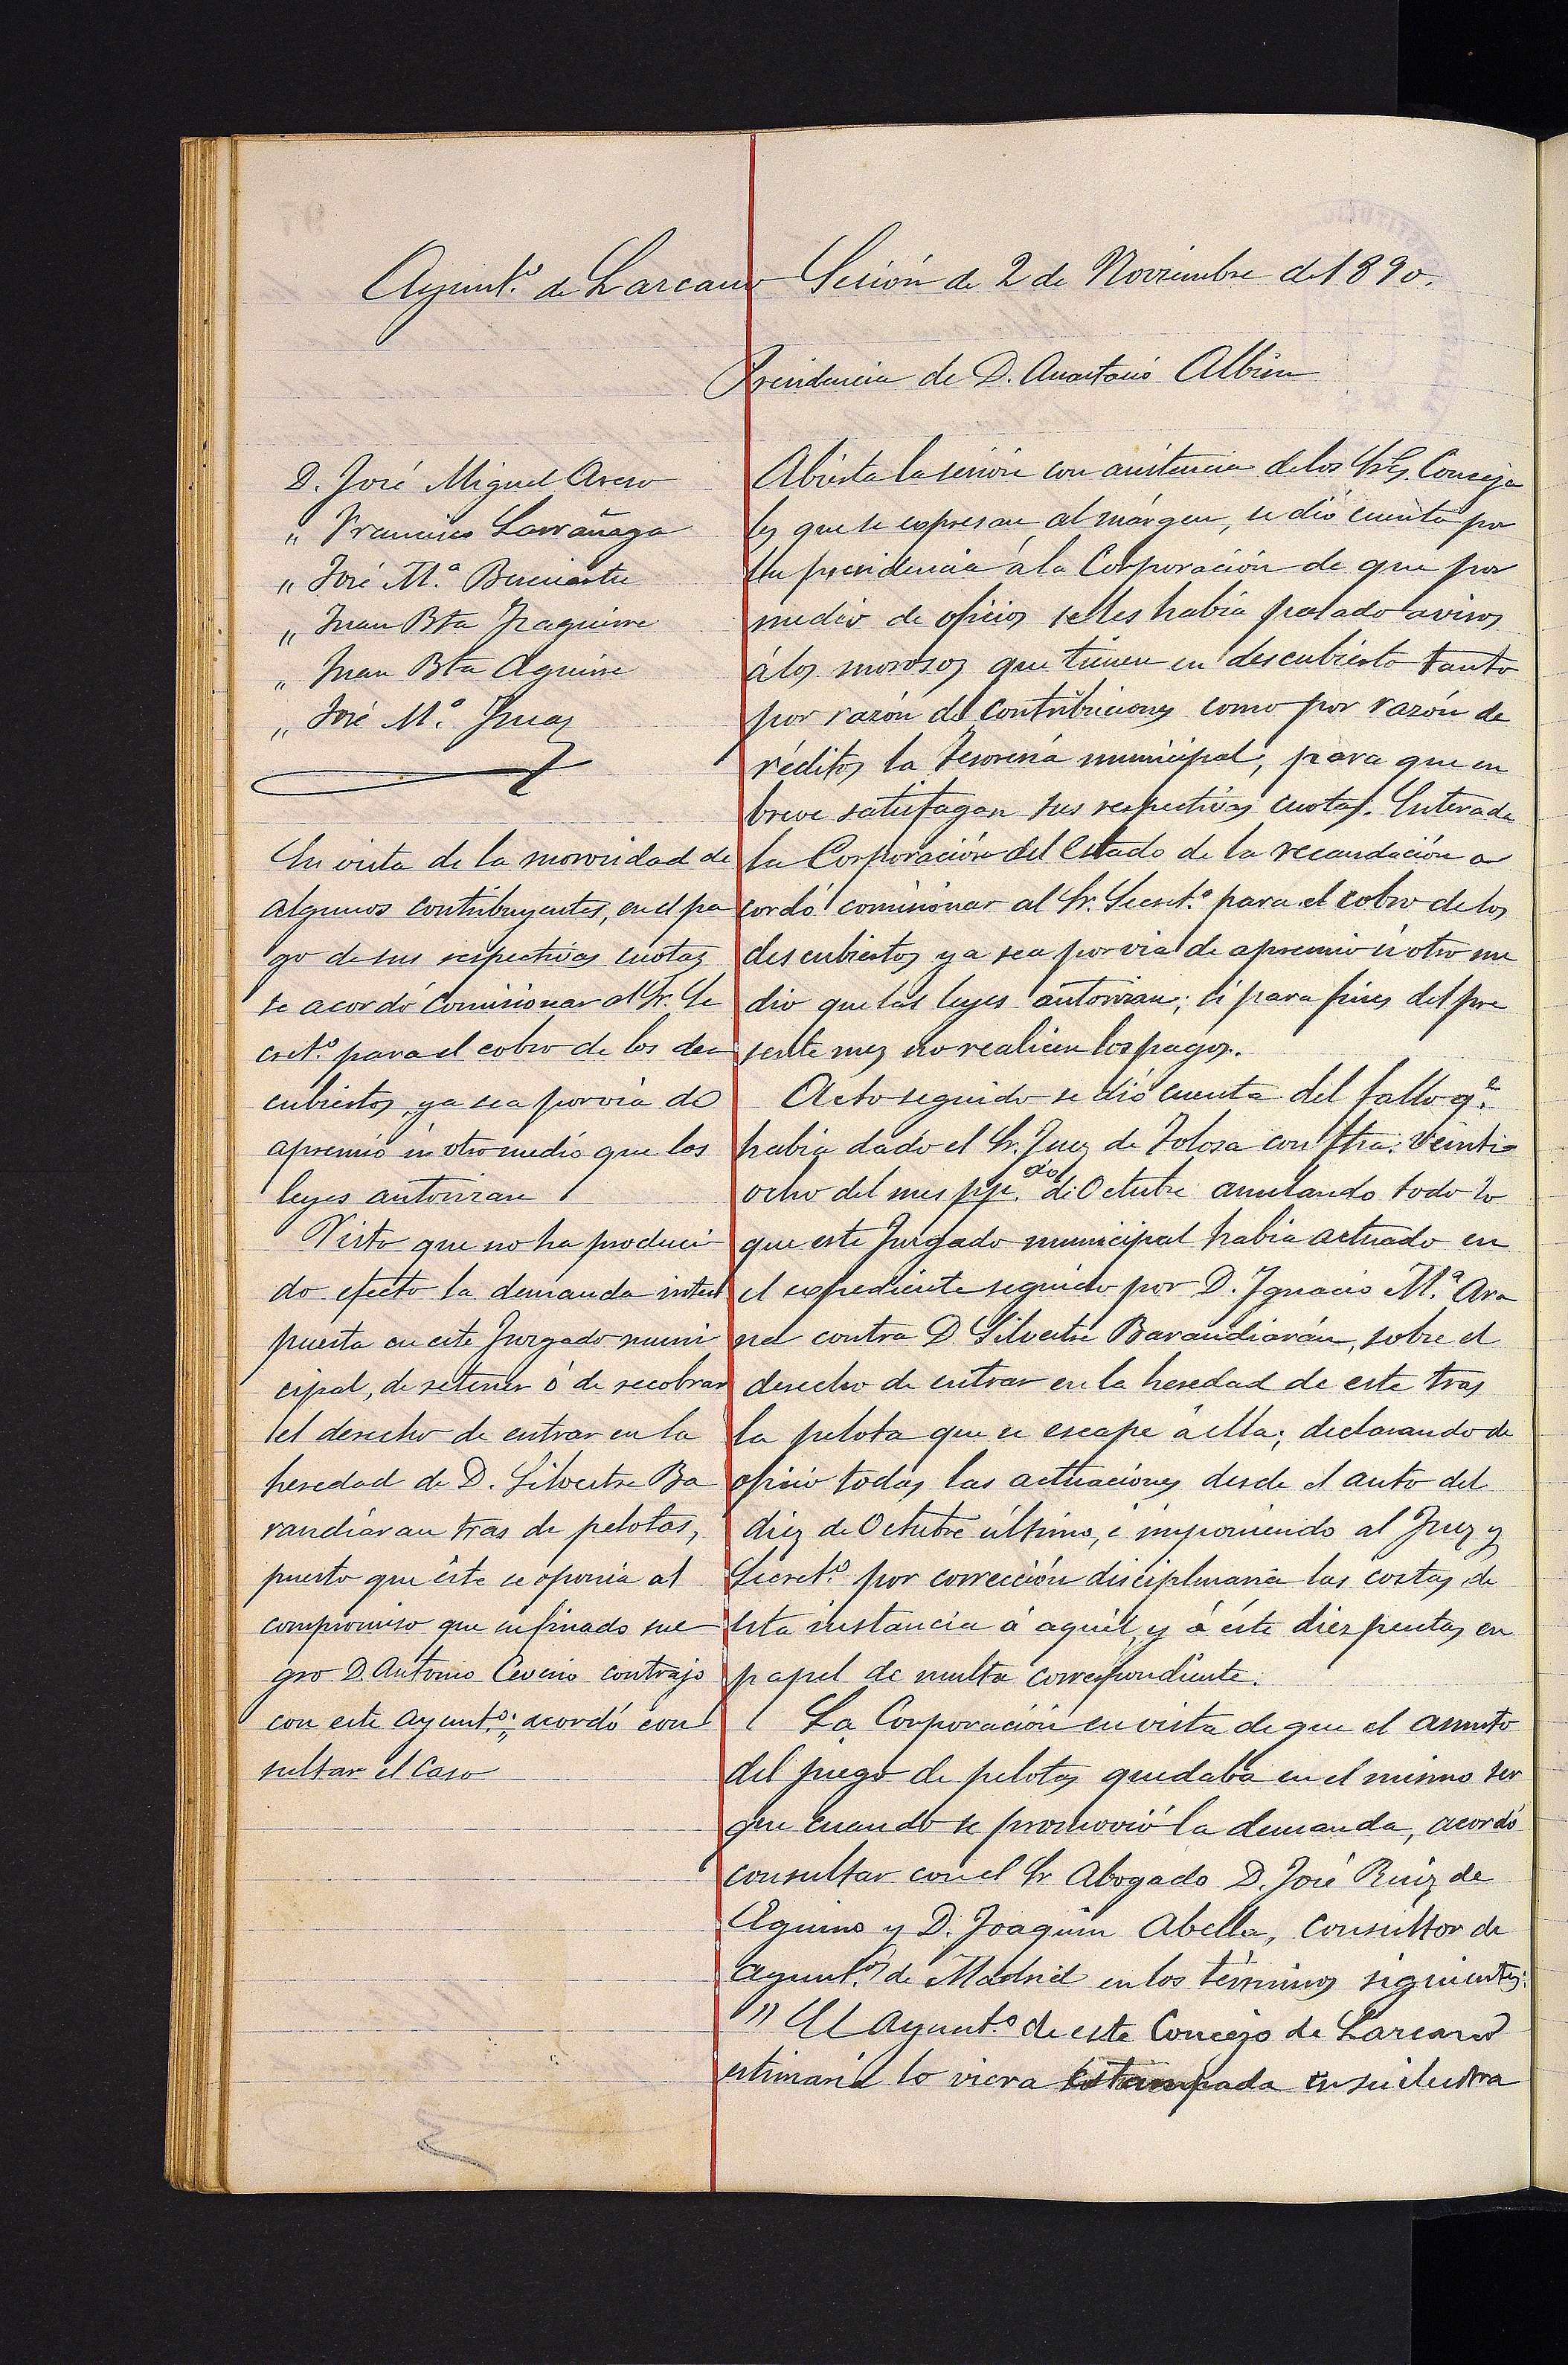 Ayunt.º de Larcano Sesión de 2 de Noviembre de 1890.
Presidencia de D. Anastasio Albisu
D. José Miguel Areso
" Francisco Larrañaga
" José M.ª
" Juan Bta Iraguirre
" Juan Bta Aguirre
" José M.ª
En vista de la morosidad de
algunos contribuyentes, en el pa
go de sus respectivas cuotas
se acordó comisionar al Sr. Se
cret.º para el cobro de los des
cubiertos, ya sea por via de
apremio ú otro medio que las
leyes autorizan
Visto que no ha produci
do efecto la demanda inter
puesta en este Juzgado muni
cipal, de retener ó de recobrar
el derecho de entrar en la
heredad de D. Silvestre Ba
randiaran tras de pelotas,
puesto que éste se oponia al
compromiso que su finado sue
gro D. Antonio contrajo
con este ayunt.º; acordó con
sultar el caso
Abierta la sesión con asistencia de los Sres. Conceja
les que se expresan al márgen, se dió cuenta por
su presidencia á la Corporación de que por
medio de oficios se les habia pasado avisos
á los morosos que tienen en descubierto tanto
por razón de contribuciones como por razón de
réditos la tesorería municipal, para que en
breve satisfagan sus respectivas cuotas. Enterada
la Corporación del Estado de la recaudación a
cordó comisionar al Sr. Secret.º para el cobro de los
descubiertos ya sea por via de apremio ú otro me
dio que las leyes autorizan; si para fines del pre
sente mes no realicen los pagos.
Acto seguido se dió cuenta del fallo q.e
habia dado el Sr. Juez de Tolosa con fha. veinti-
ocho del mes pp.do de Octubre anulando todo lo
que este Juzgado municipal habia actuado en
el expediente seguido por D. Ignacio M.ª Ara
na contra D. Silvestre Barandiarán, sobre el
derecho de entrar en la heredad de este tras
la pelota que se escape á ella; declarando de
oficio todas las actuaciones desde el auto del
diez de Octubre último, é imponiendo al Juez y
Secret.º por corrección disciplinaria las costas de
esta instancia á aquél, y á éste diez pesetas en
papel de multa correspondiente.
La Corporación en vista de que el asunto
del juego de pelotas quedaba en el mismo ser
que cuando se promovió la demanda, acordó
consultar con el Sr Abogado D. José Ruiz de
y D. Joaquin Abella, Consultor de
ayunt.os de Madrid en los términos siguientes:
" El Ayunt.º de este Concejo de Larcano
estimaria lo viera estampada en su ilustra